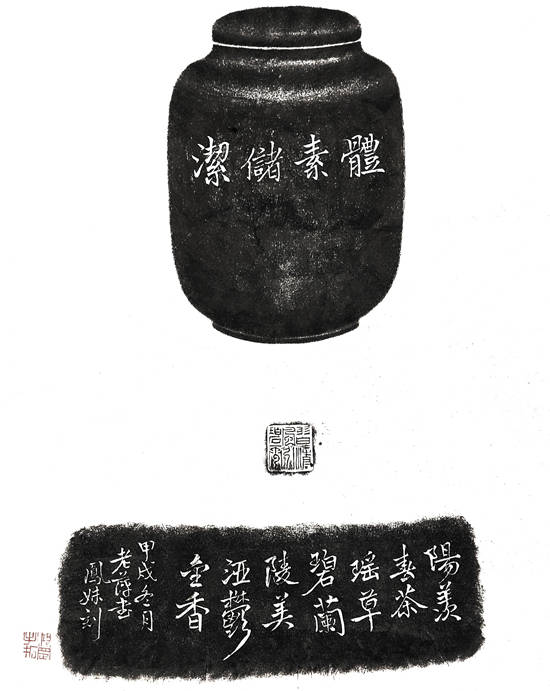 體素儲潔
陽羡
春茶
瑶草
碧蘭
陵美
酒鬱
金香
甲戌冬月
鳳妹刻